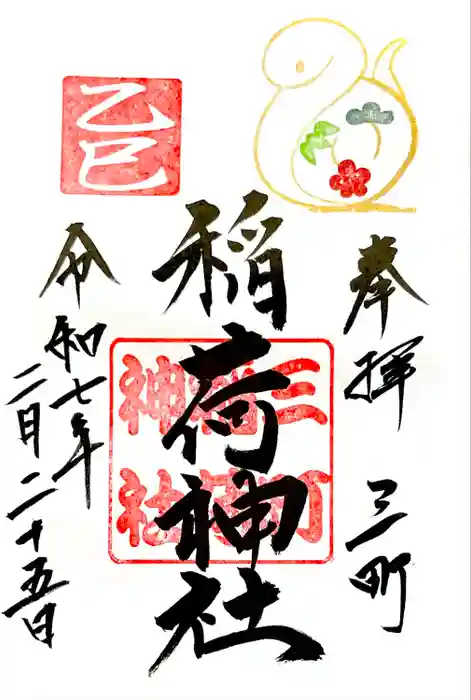 奉拝 三町
稲荷神社
三町
稲荷
神社
乙巳
令和七年
二月二十五日